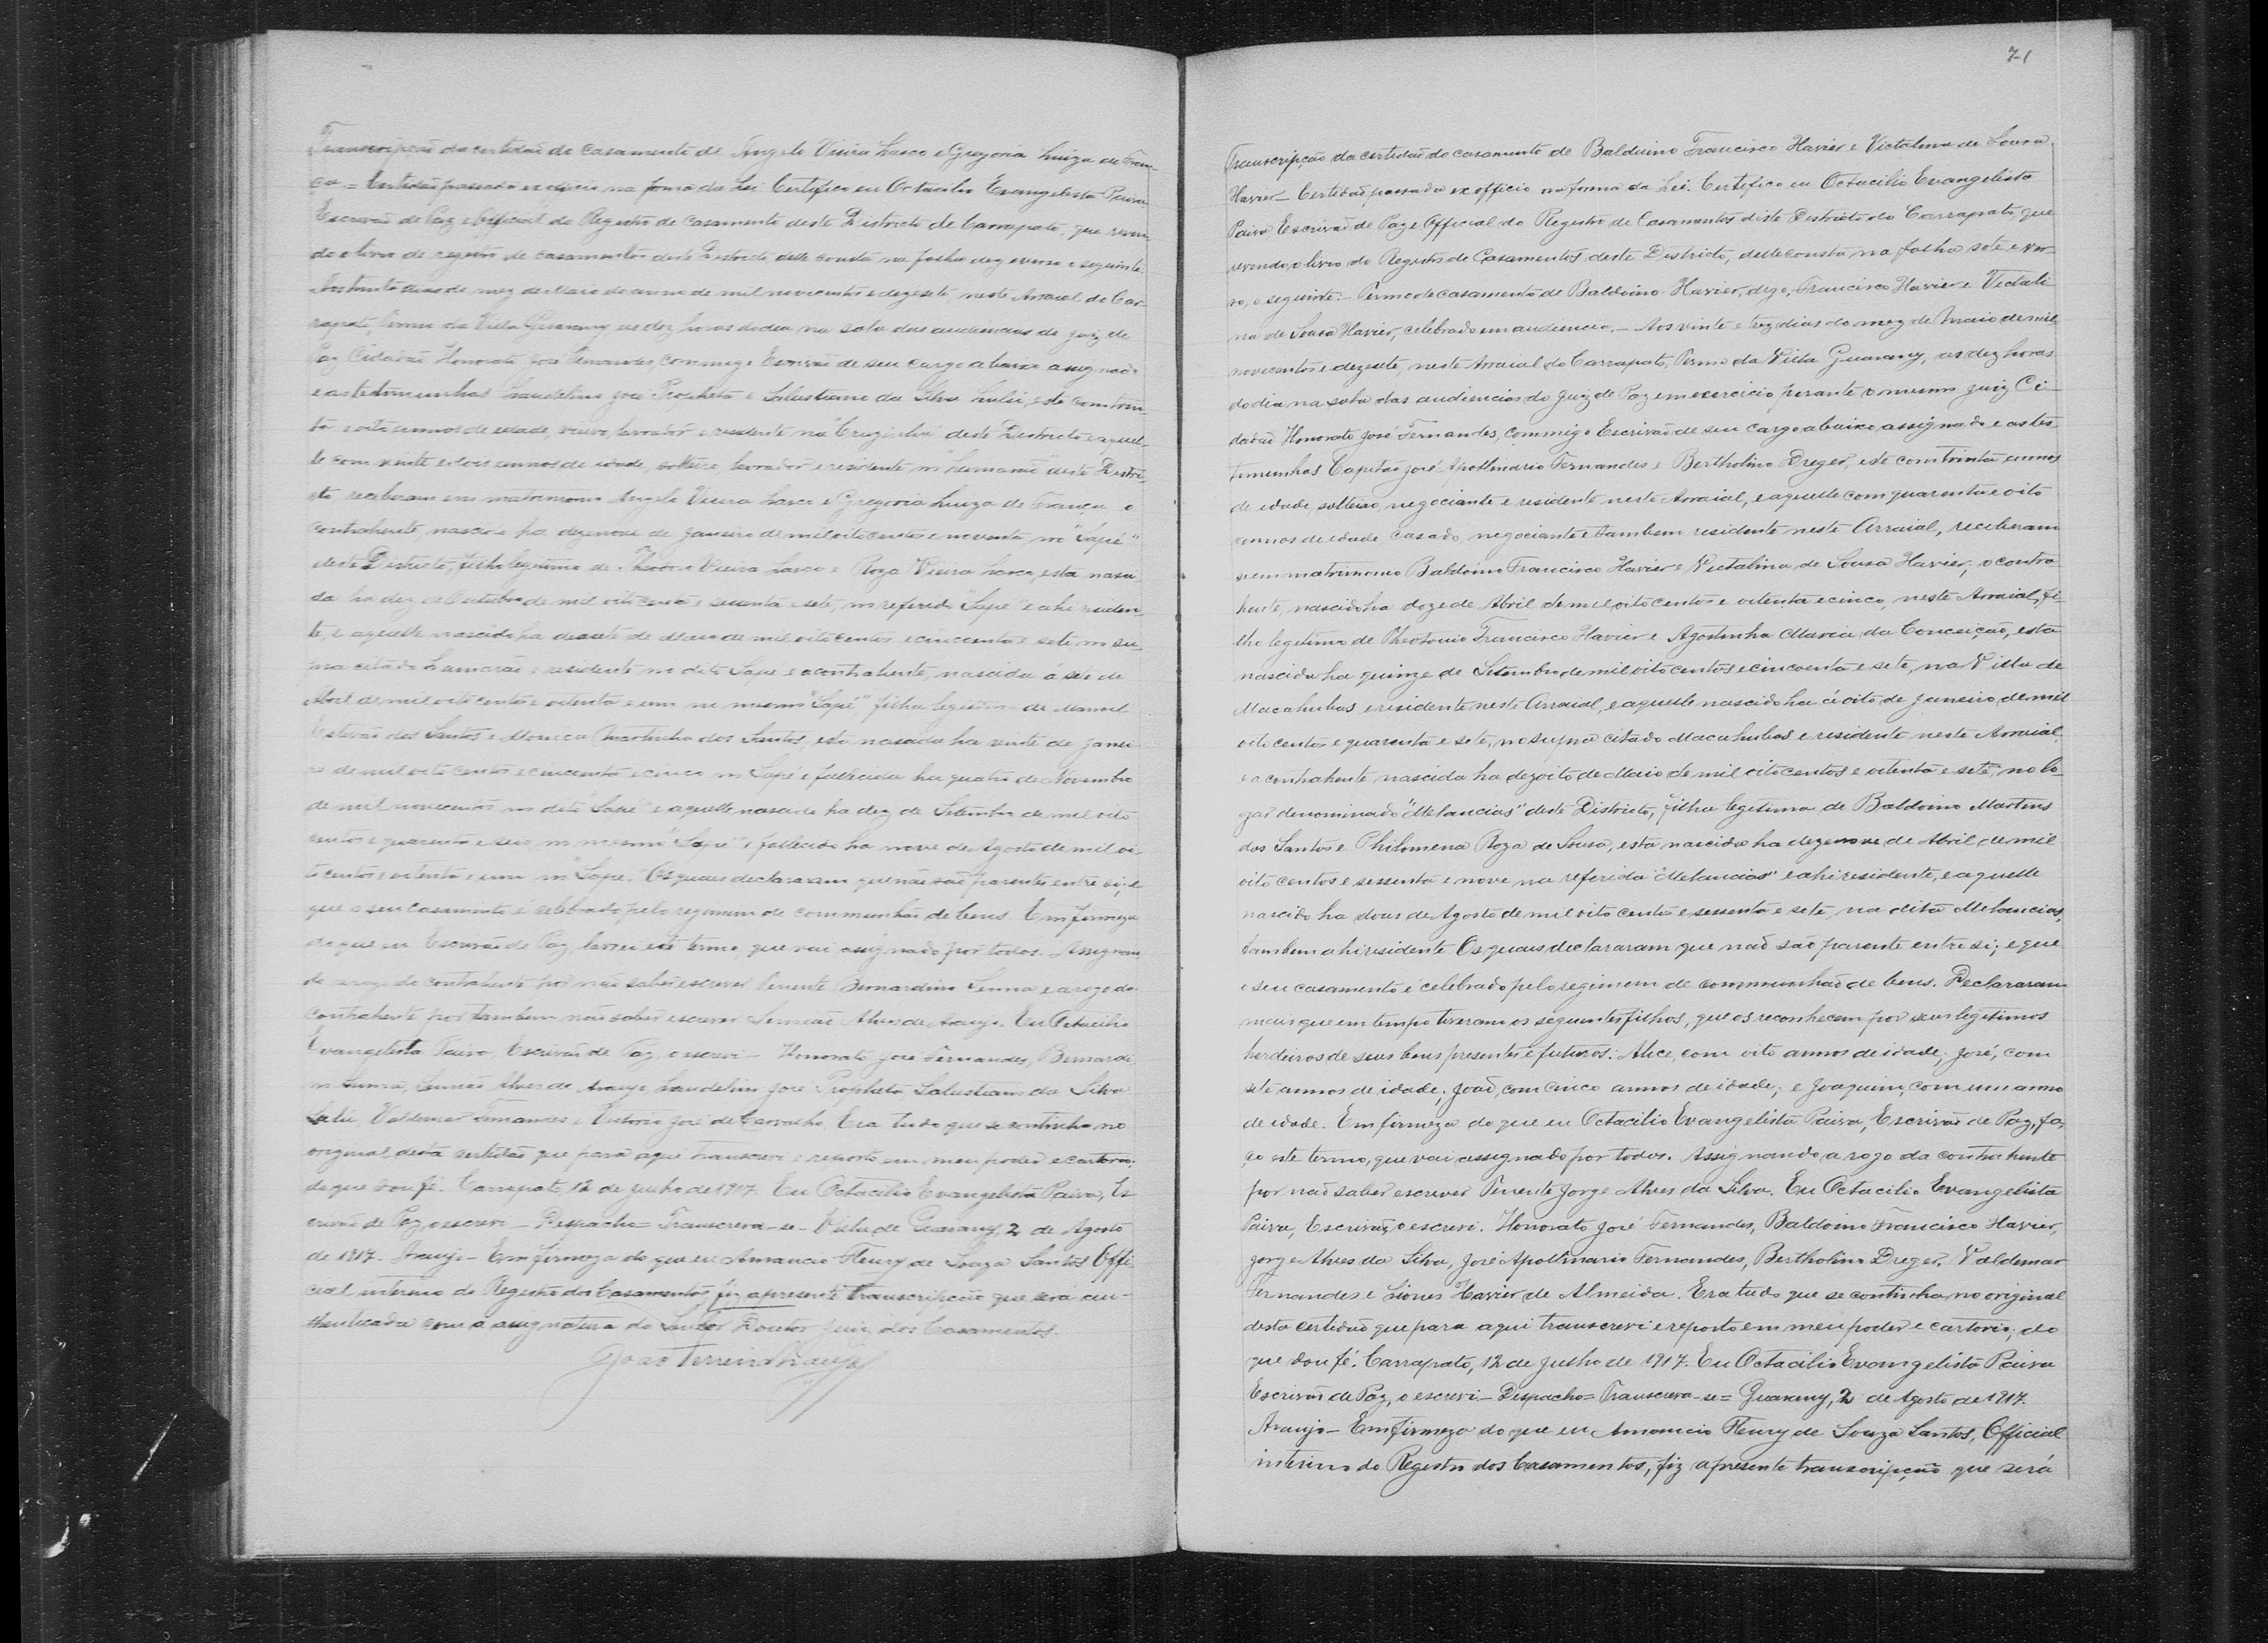 Transcripção da certidão do casamento de Angelo Vieira Lasco e Gregoria Luiza de Fran-
ça = Certidão passada ex officio na forma da Lei. Certifico eu Octacilio Evangelista Paiva
Escrivão de Paz e Official do Registro de Casamento deste Districto de Carrapato, que reven-
do o livro de registro de casamentos deste Districto, delle consta na folha dez e verso o seguinte:
dias do mez de Maio do anno de mil novecentos e dezesete, neste Arraial do Car-
rapato, Termo da Villa Guarany as dez horas do dia na sala das audiencias do juiz de
Paz Cidadão Honorato José Fernandes, commigo Escrivão de seu cargo abaixo assignado
e as testemunhas Laudelino José Propheta e Salustiano da Silva este com trin-
ta e oito annos de edade, viuvo, lavrador e residente na "Cruzinha" deste Districto e aquel-
le com vinte e dois annos de idade, solteiro, lavrador e residente no deste Distri-
cto receberam em matrimonio Angelo Vieira Lasco e Gregoria Luiza de França, o
contrahente nascido ha dezenove de Janeiro de mil oitocentos e noventa, no "Sapé"
deste Districto, filho legitimo de Vieira Lasco e Roza Vieira Lasco, esta nasci-
da ha dez de Outubro de mil oito centos e sessenta e sete, no referido "Sapé" e ahi residen-
te, e aquelle nascido ha de mil oito centos e cincoenta e sete, no su-
pra citado e residente no dito Sapé e a contrahente, nascida á sete de
Abril de mil oito centos e oitenta e um no mesmo "Sapé" filha legitima de Manoel
Estevão dos Santos e Monica Martinha dos Santos, esta nascida ha vinte de Janei-
ro de mil oito centos e cincoenta e cinco no Sapé e fallecida ha quatro de Novembro
de mil novecentos no dito "Sapé" e aquelle nascido ha dez de Setembro de mil oito
centos e quarenta e seis, no mesmo "Sapé" e fallecido ha nove de Agosto de mil oi-
to centos e oitenta e um no "Sapé". Os quaes declararam que não são parentes entre si; e
que o seu casamento é celebrado pelo regimem de communhão de bens. Em firmeza
do que eu Escrivão de Paz, lavrei este termo, que vai assignado por todos. Assignan-
do a rogo do contrahente por não saber escrever Tenente Bernardino Senna e a rogo da
contrahente por tambem não saber escrever Simeão Alves de Araujo. Eu Octacilio
Evangelista Paiva, Escrivão de Paz, o escrevi - Honorato José Fernandes, Bernardi-
no Senna, Simeão Alves de Araujo, Laudelino José Propheta, Salustiano da Silva
Valdemar Fernandes e Victorio José de Carvalho. Era tudo que se continha no
original desta certidão que para aqui transcrevi e reporto em meu poder e cartorio;
do que dou fé. Carrapato, 12 de Julho de 1917. Eu Octacilio Evangelista Paiva, Es-
crivão de Paz, o escrevi - Despacho = Transcreva-se - Villa de Guarany, 2 de Agosto
de 1917. Araujo - Em firmeza do que eu Amancio Fleury de Souza Santos, Offi-
cial interino do Registro dos Casamentos, fiz a presente transcripção que será au-
thenticada com a assignatura do Senhor Doutor Juiz dos Casamentos.
João Araujo
71
Transcripção da certidão do casamento de Balduino Francisco Havier e Victalina de Sousa
Havier - Certidão passada ex officio na forma da Lei. Certifico eu Octacilio Evangelista
Paiva Escrivão de Paz e Official do Registro de Casamentos deste Districto do Carrapato, que
revendo, o livro do Registro de Casamentos deste Districto, delle consta na folha sete e ver-
so, o seguinte: - Termo de casamento de Baldoino Havier, digo, Francisco Havier e Victali-
na de Sousa Havier, celebrado em audiencia. - Aos vinte e trez dias do mez de Maio de mil
novecentos e dezesete, neste Arraial do Carrapato, Termo da Villa Guarany, as dez horas
do dia na sala das audiencias do Juiz de Paz em exercicio perante o mesmo juiz Ci-
dadão Honorato José Fernandes, commigo Escrivão de seu cargo abaixo assignado e as tes-
temunhas Capitão José Apollinario Fernandes e Bertholino Dreger, este com trinta annos
de idade, solteiro, negociante e residente neste Arraial, e aquelle com quarenta e oito
annos de idade, casado, negociante e tambem residente neste Arraial, receberam
se em matrimonio Baldoino Francisco Havier e Victalina de Sousa Havier; o contra-
hente, nascido ha doze de Abril de mil oito centos e oitenta e cinco, neste Arraial, fi-
lho legitimo de Theotonio Francisco Havier e Agostinha Maria da Conceição, esta
nascida ha quinze de Setembro de mil oito centos e cincoenta e sete, na Villa de
Macahubas e residente neste Arraial, e aquelle nascido ha á oito de Janeiro de mil
oito centos e quarenta e sete, no supra citado Macahubas e residente neste Arraial,
e a contrahente nascida ha dezoito de Maio de mil oito centos e oitenta e sete, no lo-
gar denominado "Melancias" deste Districto, filha legitima de Baldoino Martins
dos Santos e Philomena Roza de Sousa, esta nascida ha dezenove de Abril de mil
oito centos e sessenta e nove na referida "Melancias" e ahi residente, e aquelle
nascido ha dous de Agosto de mil oito centos e sessenta e sete, na dita Melancias,
tambem ahi residente. Os quaes declararam que não são parente entre si; e que
o seu casamento é celebrado pelo regimem de communhão de bens. Declararam
mais que em tempo tiveram os seguintes filhos, que os reconhecem por seus legitimos
herdeiros de seus bens presentes e futuros: Alice, com oito annos de idade; José, com
sete annos de idade; João, com cinco annos de idade; e Joaquim, com um anno
de idade. Em firmeza do que eu Octacilio Evangelista Paiva, Escrivão de Paz, fa-
ço este termo, que vai assignado por todos. Assignando a rogo da contrahente
por não saber escrever Tenente Jorge Alves da Silva. Eu Octacilio Evangelista
Paiva, Escrivão, o escrevi. Honorato José Fernandes, Baldoino Francisco Havier,
Jorge Alves da Silva, José Apollinario Fernandes, Bertholino Dreger, Valdemar
Fernandes e Liones Havier de Almeida. Era tudo que se continha no original
desta certidão que para aqui transcrevi e reporto em meu poder e cartorio; do
que dou fé. Carrapato, 12 de Julho de 1917. Eu Octacilio Evangelista Paiva
Escrivão de Paz, o escrevi - Despacho = Transcreva-se = Guarany, 2 de Agosto de 1917.
Araujo - Em firmeza do que eu Amancio Fleury de Souza Santos, Official
interino do Registro dos Casamentos, fiz a presente transcripção que será